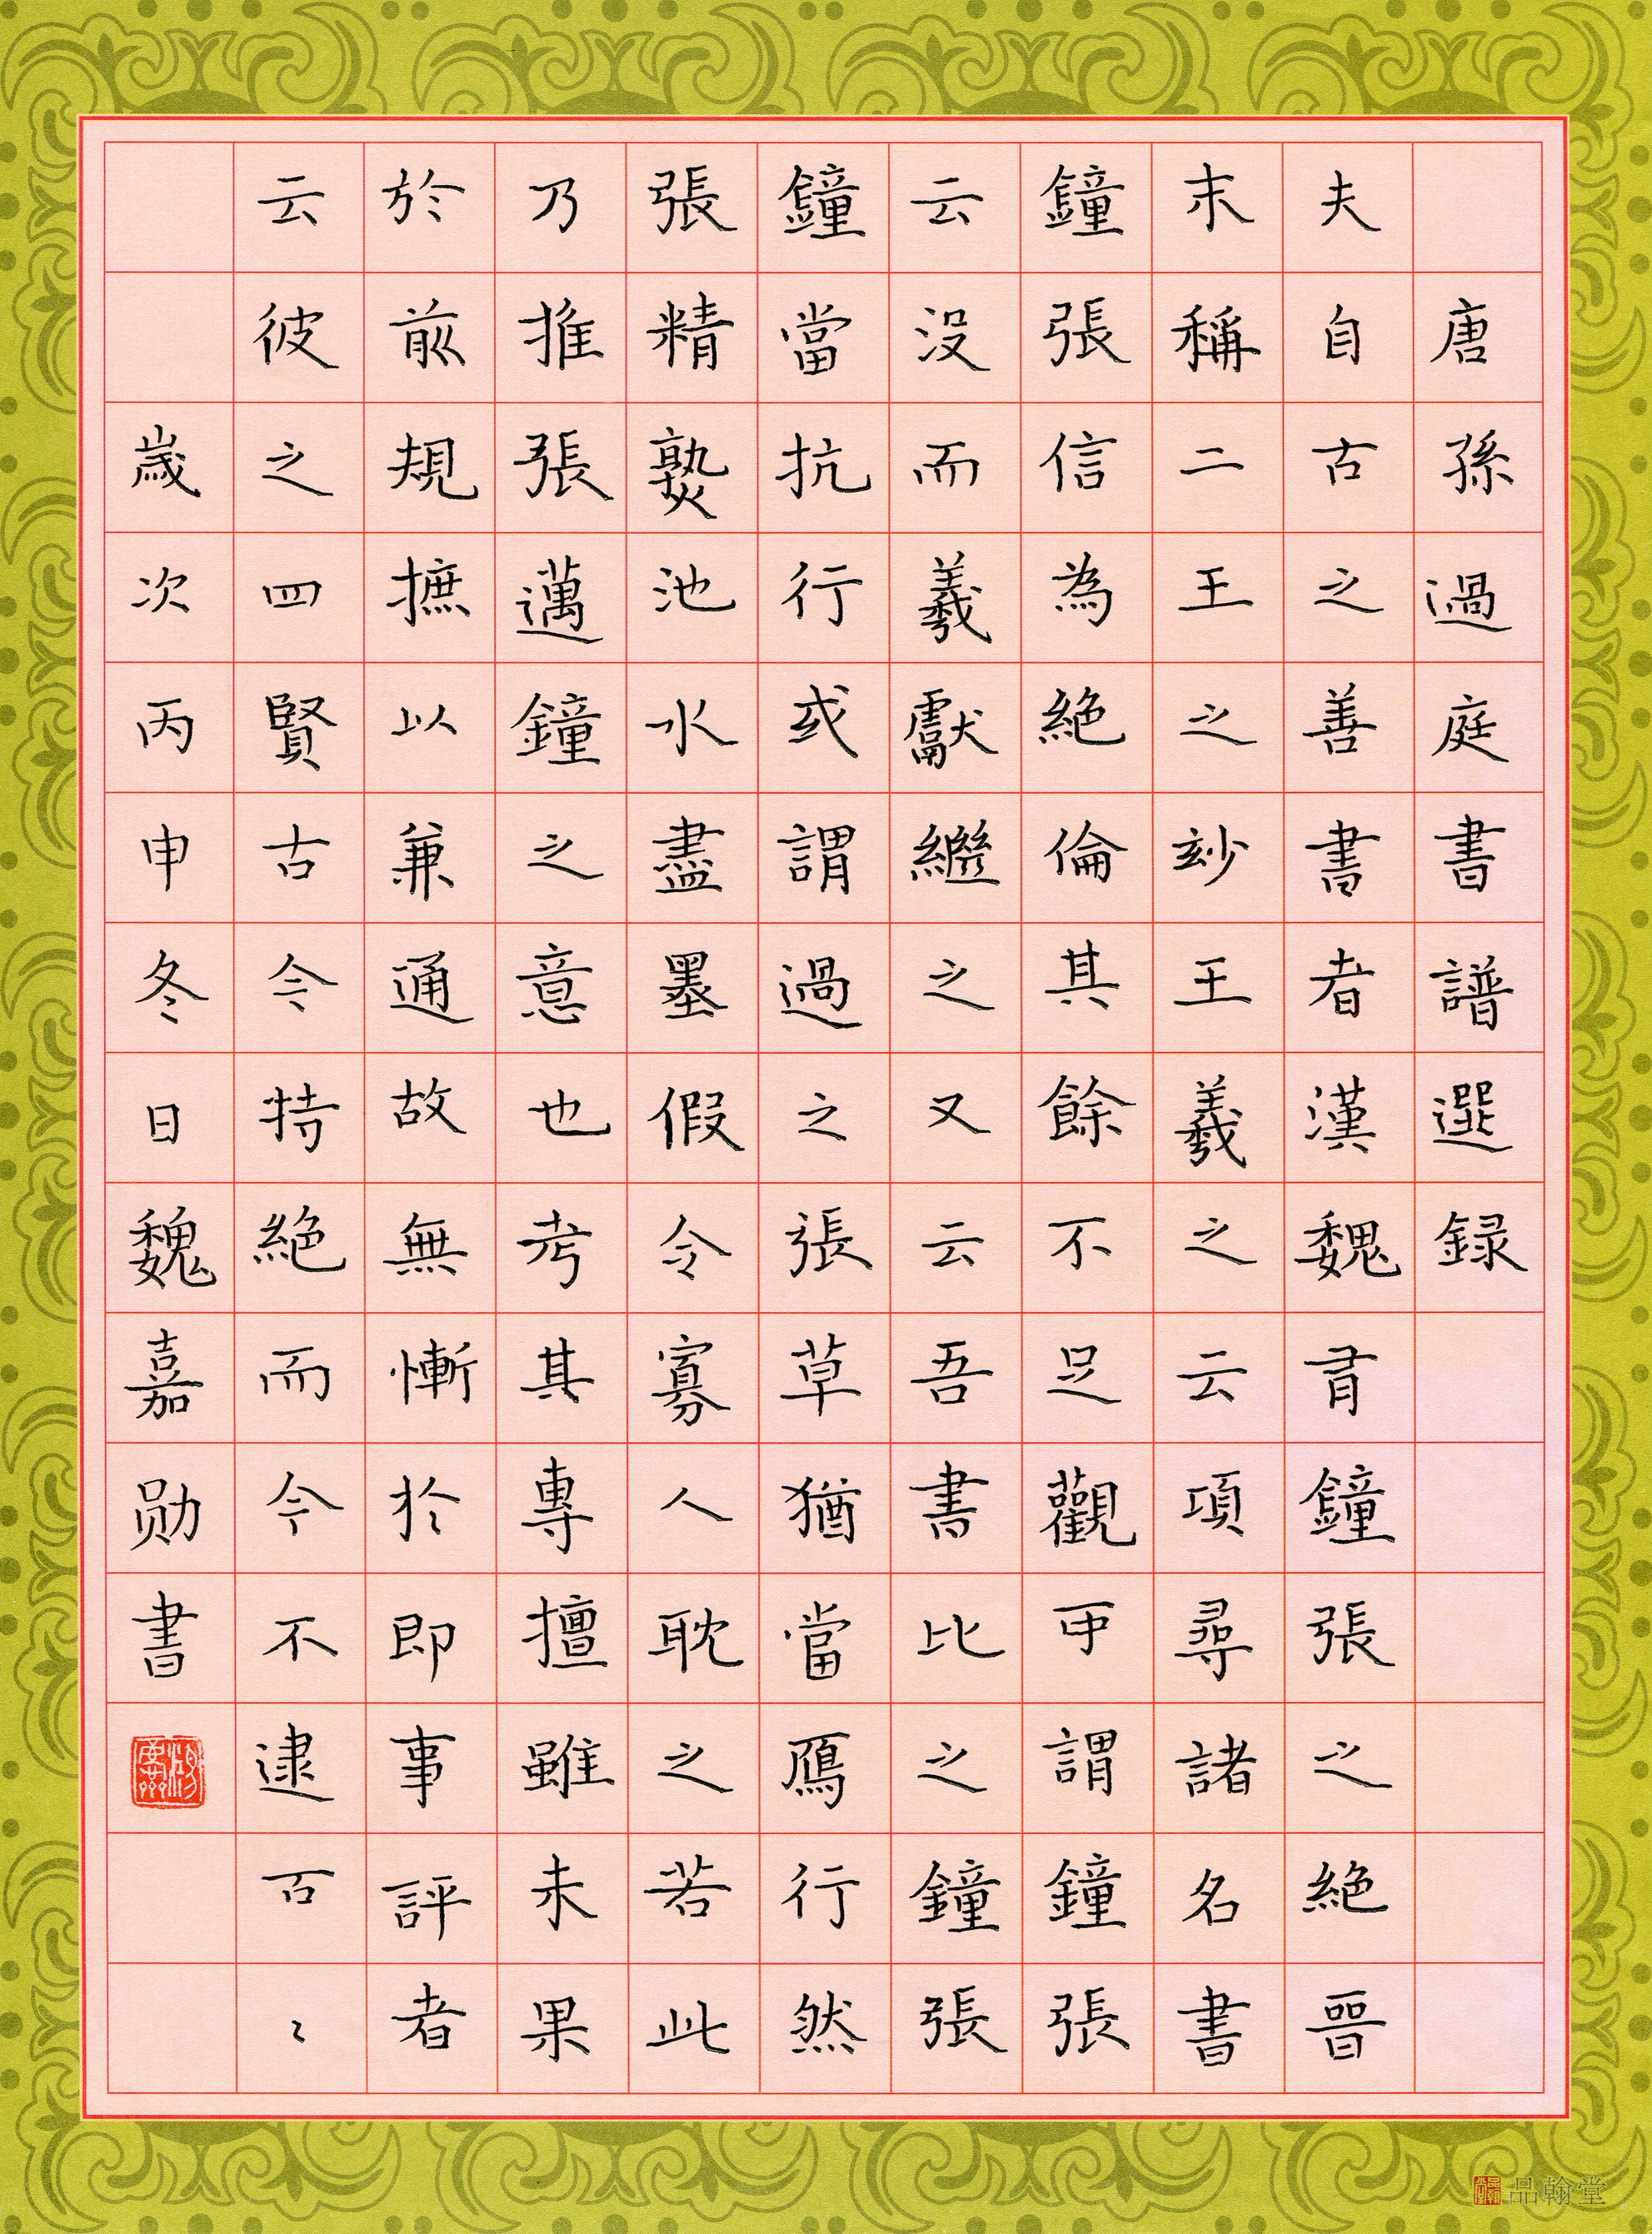 唐孫過庭書譜選録
夫自古之善書者漢魏有鐘張之絶晉
末稱二王之妙王羲之云項尋諸名書
鐘張信為絶倫其餘不足觀可謂鐘張
云没而羲獻繼之又云吾書比之鐘張
鐘當抗行或謂過之張草猶當鴈行然
張精熟池水盡墨假令寡人耽之若此
乃推張邁鐘之意也考其專擅雖未果
於前規摭以兼通故無慚於即事評者
云彼之四賢古今特絶而今不逮古〻
歲次丙申冬日魏嘉勋書
品翰堂